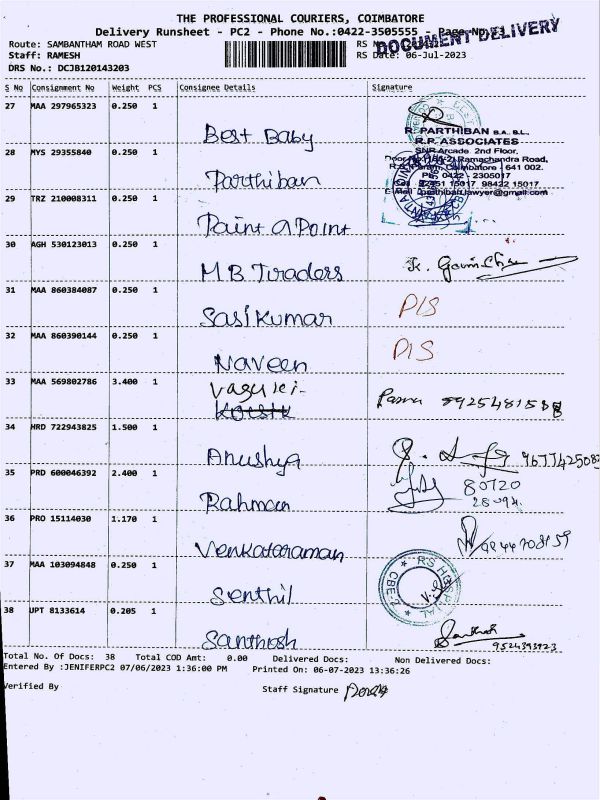 THE PROFESSIONAL COURIERS, COIMBATORE
Delivery Runsheet - PC2 - Phone No.:0422-3505555 - Page No.
DOCUMENT DELIVERY
Route: SAMBANTHAM ROAD WEST RS
Staff: RAMESH RS Date: 06-Jul-2023
DRS No.: DCJB120143203
S No Consignment No Weight PCS Consignee Details Signature
27 MAA 297965323 0.250 1
Best Baby
R. PARTHIBAN B.A. B.L.
R.P. ASSOCIATES
28 MYS 29355840 0.250 1
SNR Arcade 2nd Floor,
Ramachandra Road,
Coimbatore - 641 002.
Parthiban
Ph: 0422 - 2305017
15017 98422 15017
29 TRZ 210008311 0.250 1
Paint a Point
30 AGH 530123013 0.250 1
M.B Traders
31 MAA 860384087 0.250 1
Sasikumar D/S
32 MAA 860390144 0.250 1
Naveen D/S
33 MAA 569802786 3.400 1
34 HRD 722943825 1.500 1
Anushya
35 PRD 600046392 2.400 1
80720
Rahman
36 PRO 15114030 1.170 1
Venkataraman
37 MAA 103094848 0.250 1
RS HOSPITAL
Senthil
38 UPT 8133614 0.205 1
Santhosh
Total No. Of Docs: 38 Total COD Amt: 0.00 Delivered Docs: Non Delivered Docs:
Entered By :JENIFERPC2 07/06/2023 1:36:00 PM Printed On: 06-07-2023 13:36:26
Verified By Staff Signature